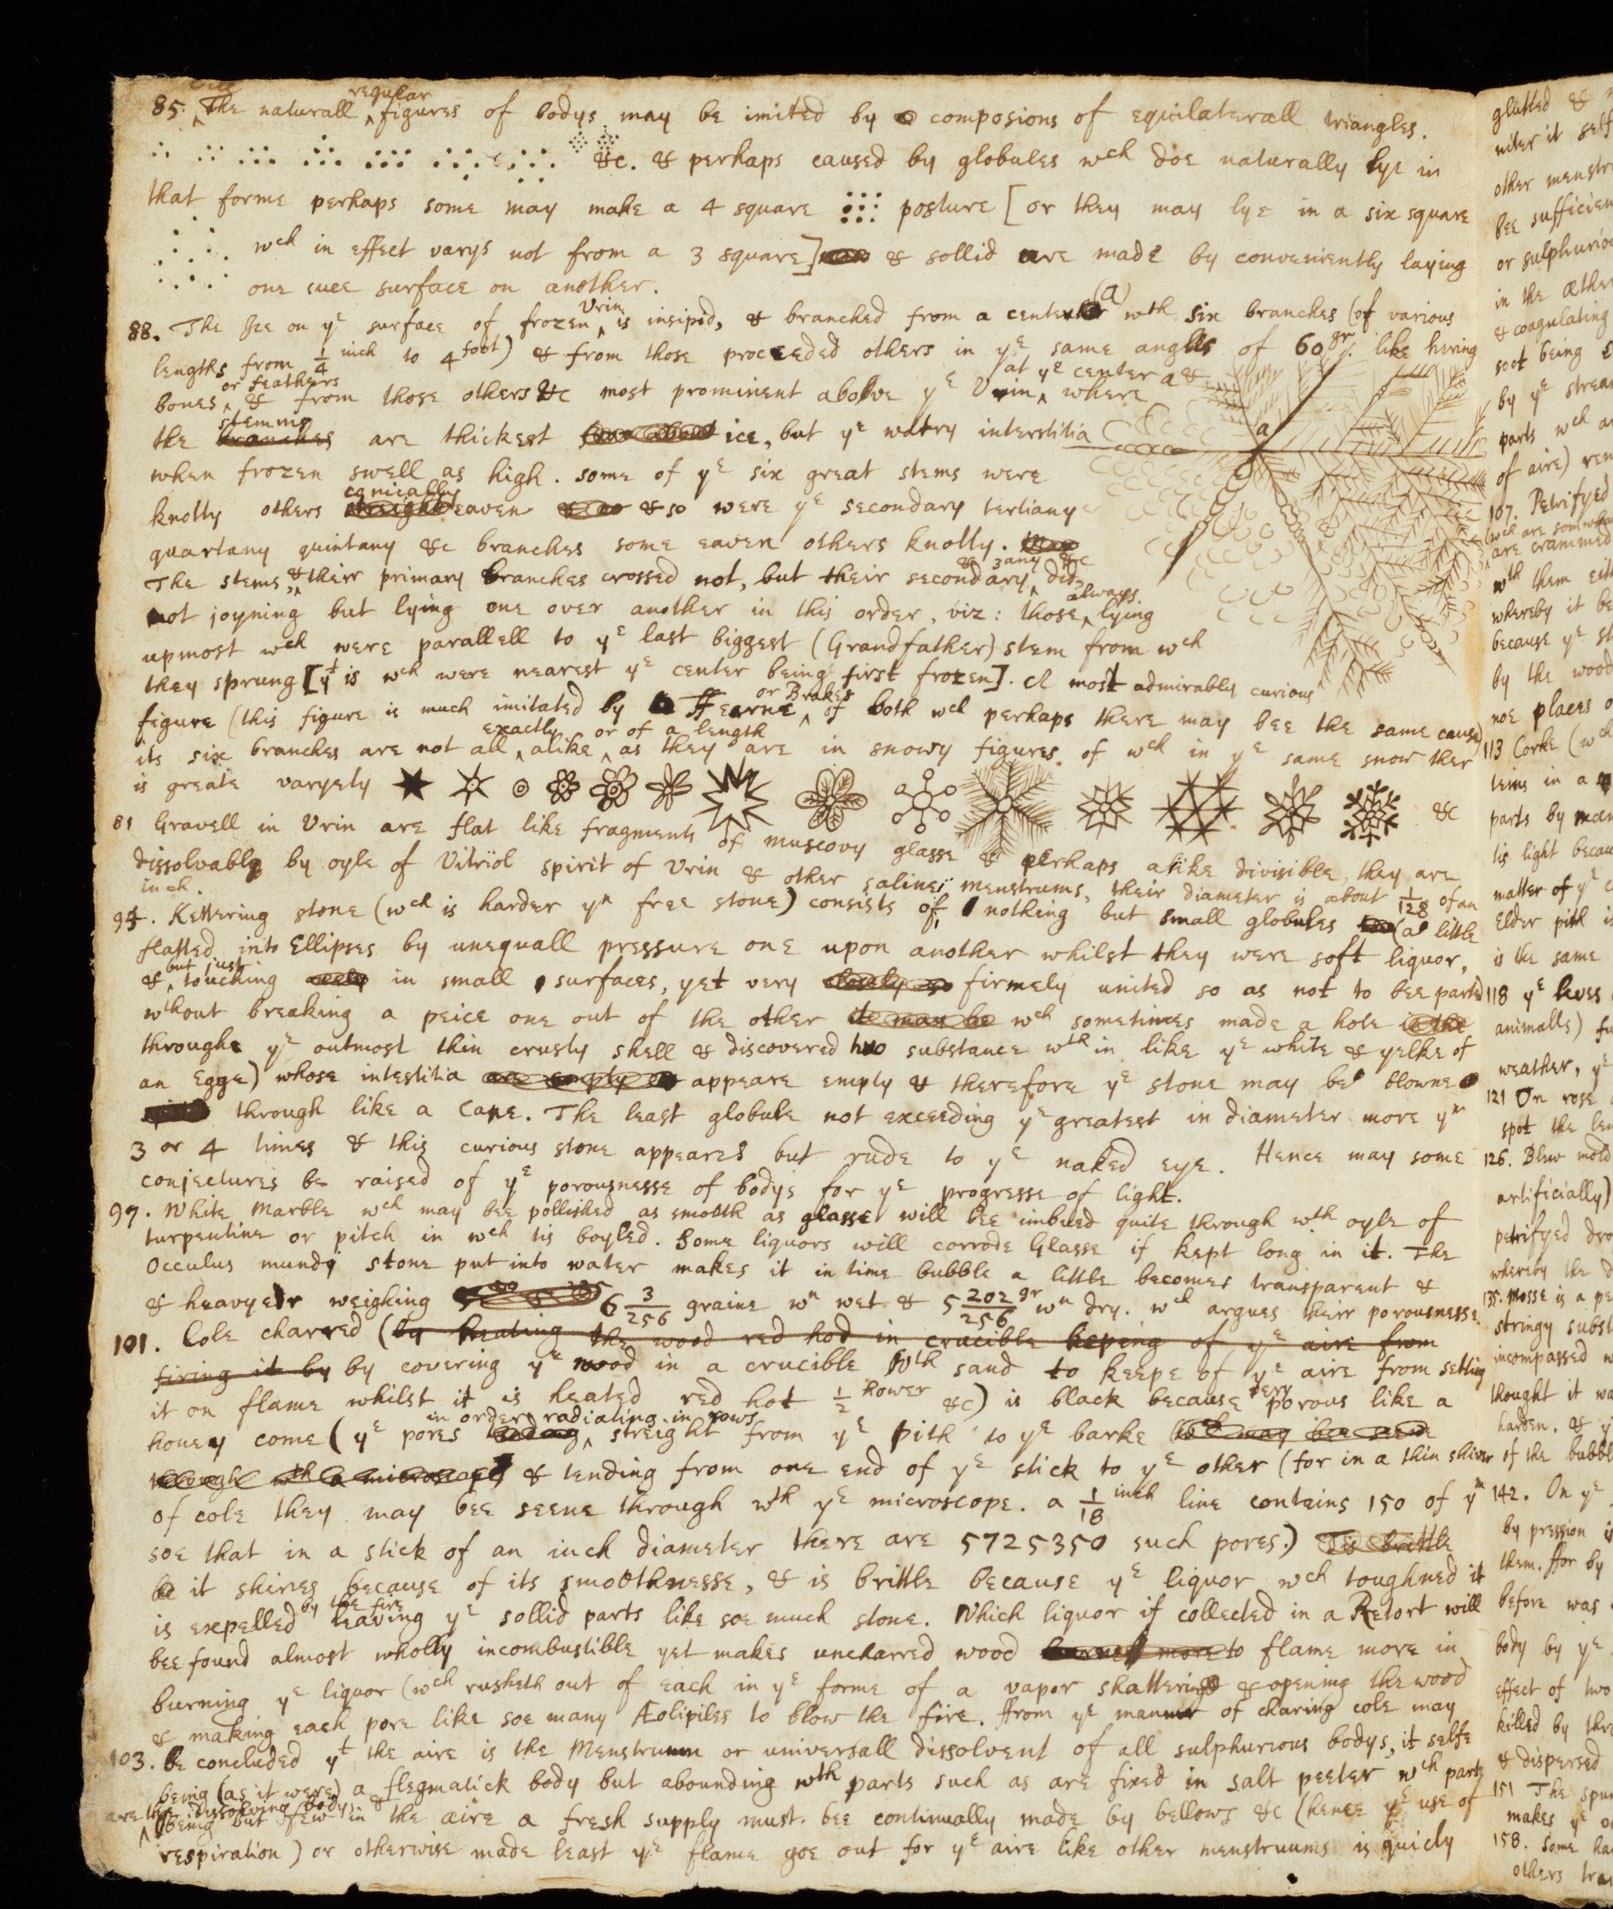 85. The naturall regular figures of bodys may be imited by composions of equilaterall triangles.
&c. & perhaps caused by globules wch doe naturally lye in
that forme perhaps some may make a 4 square posture [or they may lye in a six square
wch in effect varys not from a 3 square] & sollid are made by conveniently laying
one suce surface on another.
88. The Ice on ye surface of frozen Urin is insipid, & branched from a center (a) wth six branches (of various
lengths from 1/4 inch to 4 foot) & from those proceeded others in ye same angles of 60 gr. like hering
bones or feathers & from those others &c most prominent above ye Urin at ye center a & where
the branches stemms are thickest ice, but ye watry interstitia
when frozen swell as high. some of ye six great stems were
knotty others streight conically eaven & so were ye secondary tertiany
quartany quintany &c branches some eaven others knotty.
The stems, & their primary branches crossed not, but their secondary, & 3any &c did
not joyning but lying one over another in this order, viz: those always lying
upmost wch were parallell to ye last biggest (Grandfather) stem from wch
they sprung [yt is wch were nearest ye center being first frozen]. A most admirably curious
figure (this figure is much imitated by Fearne or Brakes of both wch perhaps there may bee the same cause)
its six branches are not all exactly alike or of a length as they are in snowy figures. of wch in ye same snow ther
is greate varyety &c
81 Gravell in Urin are flat like fragments of muscovy glasse & perhaps alike divisible, they are
dissolvable by oyle of Vitriol spirit of Urin & other saline menstrums, their diameter is about 1/128 of an
inch.
94. Kettering stone (wch is harder yn free stone) consists of nothing but small globules (a little
flatted into Ellipses by unequall pressure one upon another whilst they were soft liquor,
& but just touching only in small surfaces, yet very closely so firmely united so as not to bee parted
wthout breaking a peice one out of the other it may be wch sometimes made a hole in the
through ye outmost thin crusty shell & discovered two substance wthin like ye white & yelke of
an Egge) whose intestitia are empty appeare empty & therefore ye stone may be blowne
through like a Cane. The least globule not exceeding ye greatest in diameter more yn
3 or 4 times & this curious stone appeares but rude to ye naked eye. Hence may some
conjectures be raised of ye porousnesse of bodys for ye progresse of light.
97. White Marble wch may bee pollished as smooth as glasse will bee imbued quite through wth oyle of
turpentine or pitch in wch tis boyled. Some liquors will corrode Glasse if kept long in it. The
Occulus mundi stone put into water makes it in time bubble a little becomes transparent &
& heavyer weighing 6 3/256 graine wn wet & 5 202/256 gr wn dry. wch argues their porousnesse.
101. Cole charred (by heating the wood red hod in crucible keping of ye aire from
firing it by by covering ye wood in a crucible wth sand to keepe of ye aire from setting
it on flame whilst it is heated red hot 1/2 hower &c) is black because very porous like a
honey come (ye pores in order radiating in rows streight from ye pith to ye barke wch may bee seene
through wth a microscope & tending from one end of ye stick to ye other (for in a thin shiver
of cole they may bee seene through wth ye microscope. a 1/18 inch line contains 150 of ym
soe that in a stick of an inch diameter there are 5725350 such pores.) Tis brittle
it shines because of its smoothnesse, & is brittle because ye liquor wch toughned it
is expelled by the fire leaving ye sollid parts like soe much stone. Which liquor if collected in a Retort will
bee found almost wholly incombustible yet makes uncharred wood burne more to flame more in
burning ye liquor (wch rusheth out of each in ye forme of a vapor shattering & opening the wood
& making each pore like soe many Æolipiles to blow the fire. ffrom ye manner of charing cole may
103. be concluded yt the aire is the Menstruum or universall dissolvent of all sulphurious bodys, it selfe
being (as it were) a flegmatick body but abounding wth parts such as are fixed in salt peeter wch parts
are the dissolving bodys &
being but few in the aire a fresh supply must bee continually made by bellows &c (hence ye use of
respiration) or otherwise made least ye flame goe out for ye aire like other menstruums is quicly
glutted &
other menstru
bee sufficien
or sulphurio
in the æther
& coagulating
soot being
by ye strea
parts wch ar
of aire) ren
107. Petrifyed
wch are somwha
are crammed
wth them eit
whereby it be
because ye st
by the wood
noe places o
113 Corke (wch
tems in a
parts by man
tis light becau
matter of ye c
Elder pith is
is the same
118 ye leves
animalls) fu
weather, ye
121 On rose
spot the lea
126. Blew mold
artificially)
petrifyed dro
whereby the d
135. Mosse is a pe
stringy subst
incompassed w
thought it wa
harden. & y
of the bubbl
142. On ye
by pression is
them. ffor by
before was
body by ye
effect of two
killed by thr
& dispersed
151 The spun
makes ye
158. Some ha
others tra